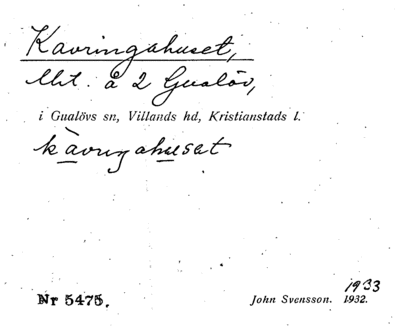 Kavringahuset,
lht. å 2 Gualöv,
i Gualövs sn, Villands hd, Kristianstads l.
kavringahuset
Nr 5475.
1933
John Svensson. 1932.